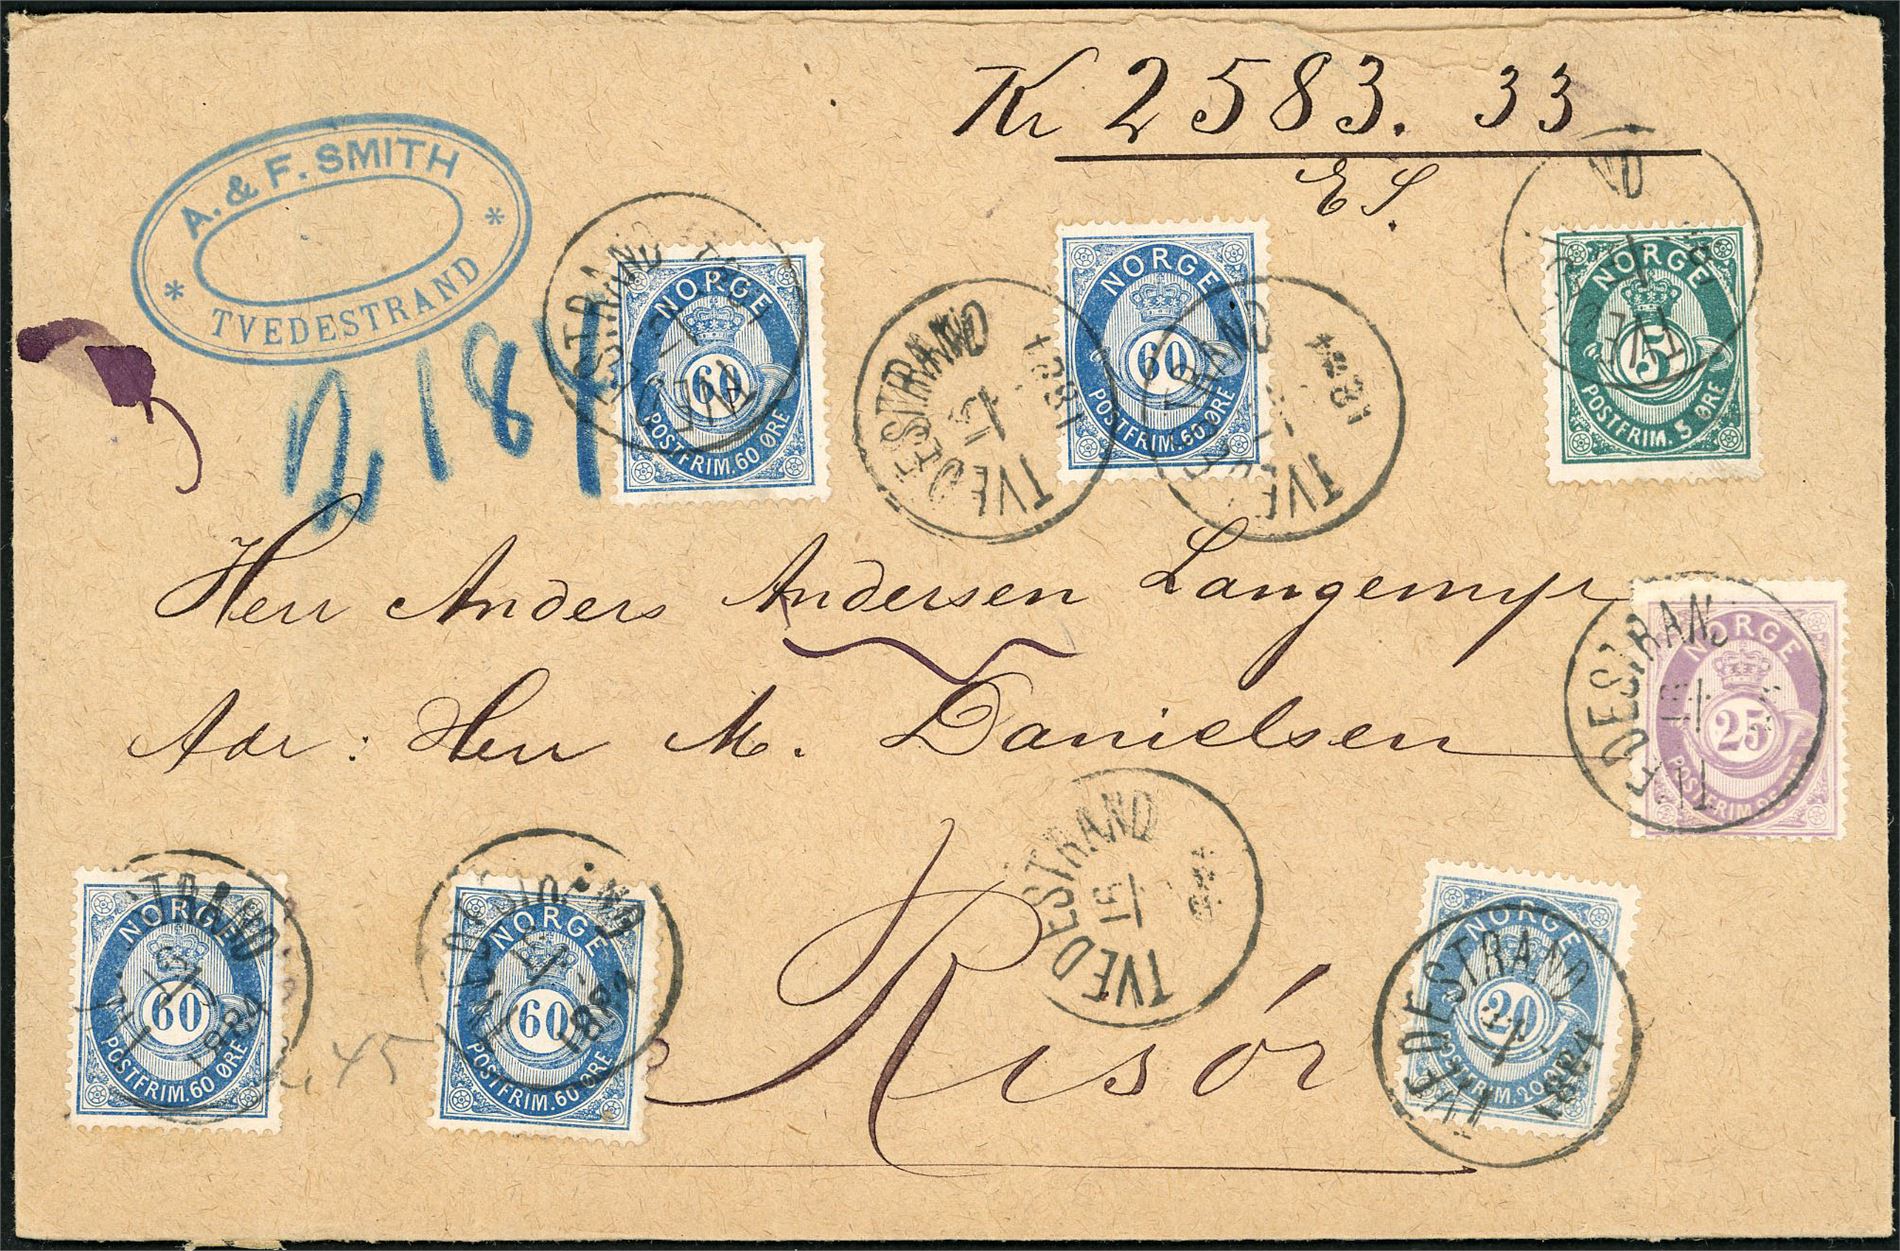 Kr 2583.33
E S.
A. & F. SMITH
* *
TVEDESTRAND
2,184
NORGE
60
POSTFRIM. 60 ØRE
TVEDESTRAND
NORGE
60
POSTFRIM. 60 ØRE
TVEDESTRAND
15
1884
TVEDESTRAND
1884
NORGE
5
POSTFRIM. 5 ØRE
Herr Anders Andersen Langemyr
Adr: Herr M. Danielsen
Risör
NORGE
25
POSTFRIM. 25
TVEDESTRAND
15
TVEDESTRAND
15
NORGE
60
POSTFRIM. 60 ØRE
1884
45
NORGE
60
POSTFRIM. 60 ØRE
1884
NORGE
20
POSTFRIM. 20 ØRE
TVEDESTRAND
1884